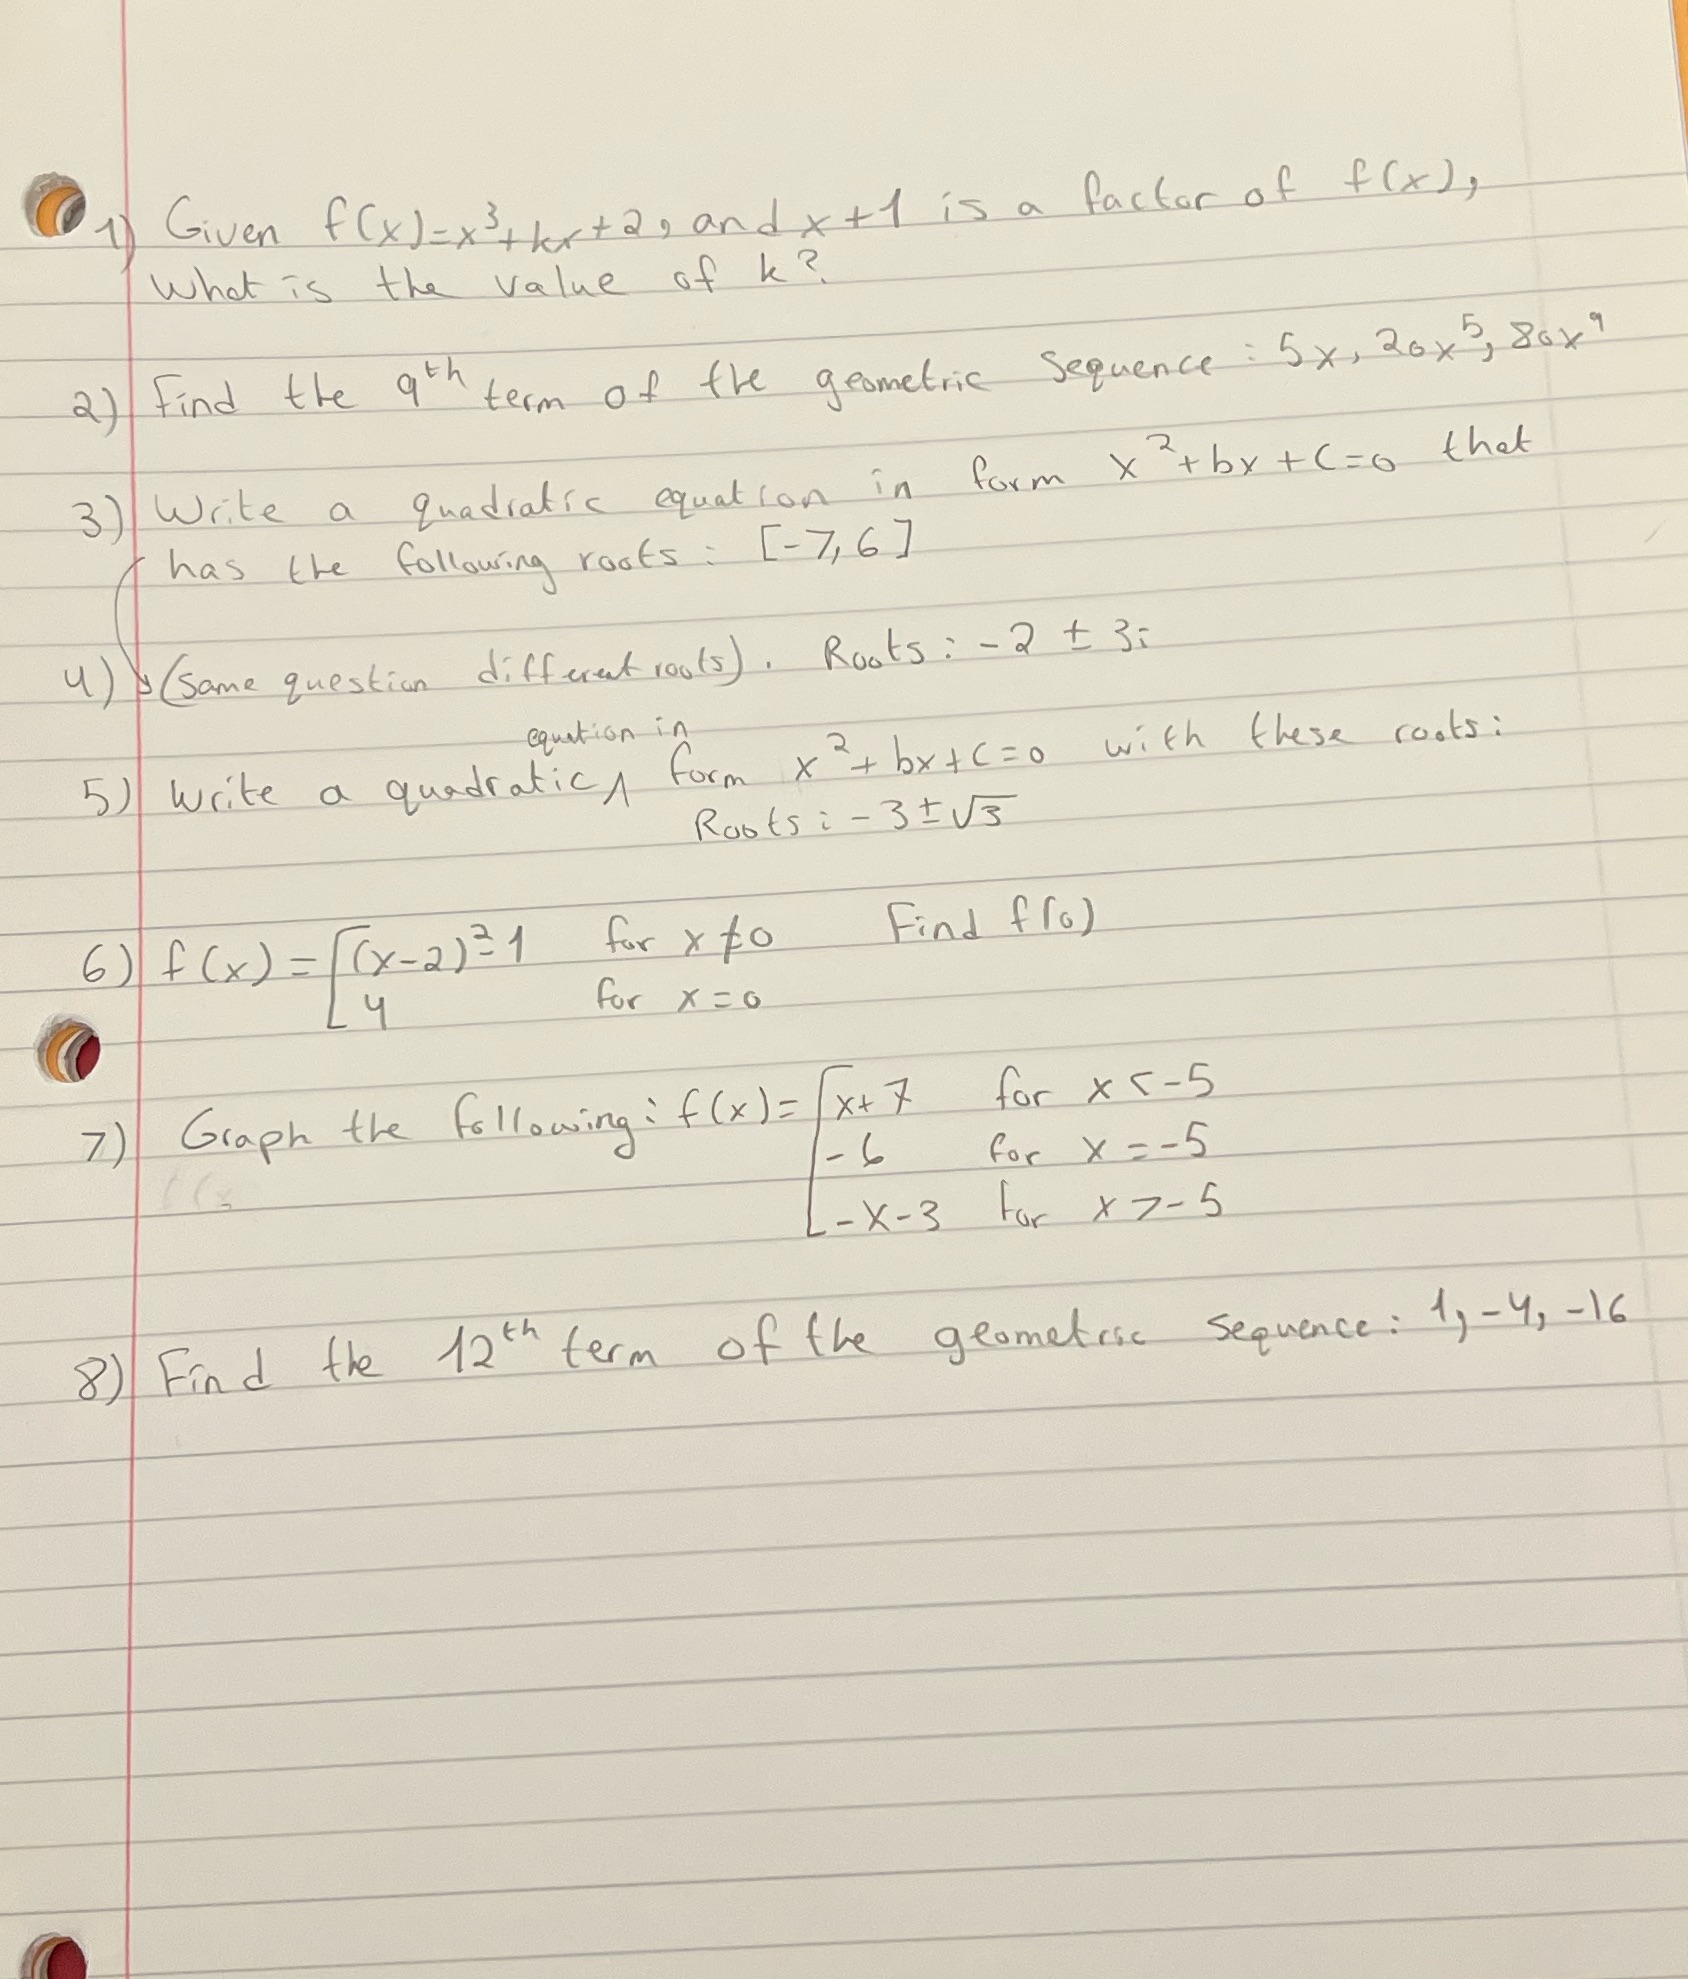 1) Given f(x)=x³+kx+2, and x+1 is a factor of f(x),
What is the value of k?
2) Find the 9th term of the geometric sequence: 5x, 20x⁵, 80x⁹
3) Write a quadratic equation in form x²+bx+c=0 that
has the following roots: [-7,6]
4) (same question different roots). Roots: -2 ± 3i
equation in
5) Write a quadratic ∧ form x²+bx+c=0 with these roots:
Roots: -3±√3
6) f(x)=[(x-2)²-1 for x≠0 Find f(0)
4 for x=0
7) Graph the following: f(x)=[x+7 for x<-5
-6 for x=-5
-x-3 for x>-5
8) Find the 12th term of the geometric sequence: 1, -4, -16